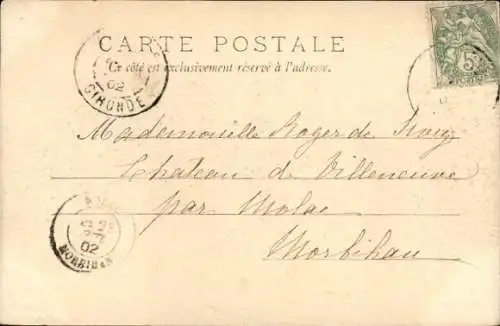 CARTE POSTALE
Ce côté est exclusivement réservé à l'adresse.
5
02
GIRONDE
Mademoiselle Roger de
Château de Villeneuve
par Molac
Morbihan
02
MORBIHAN